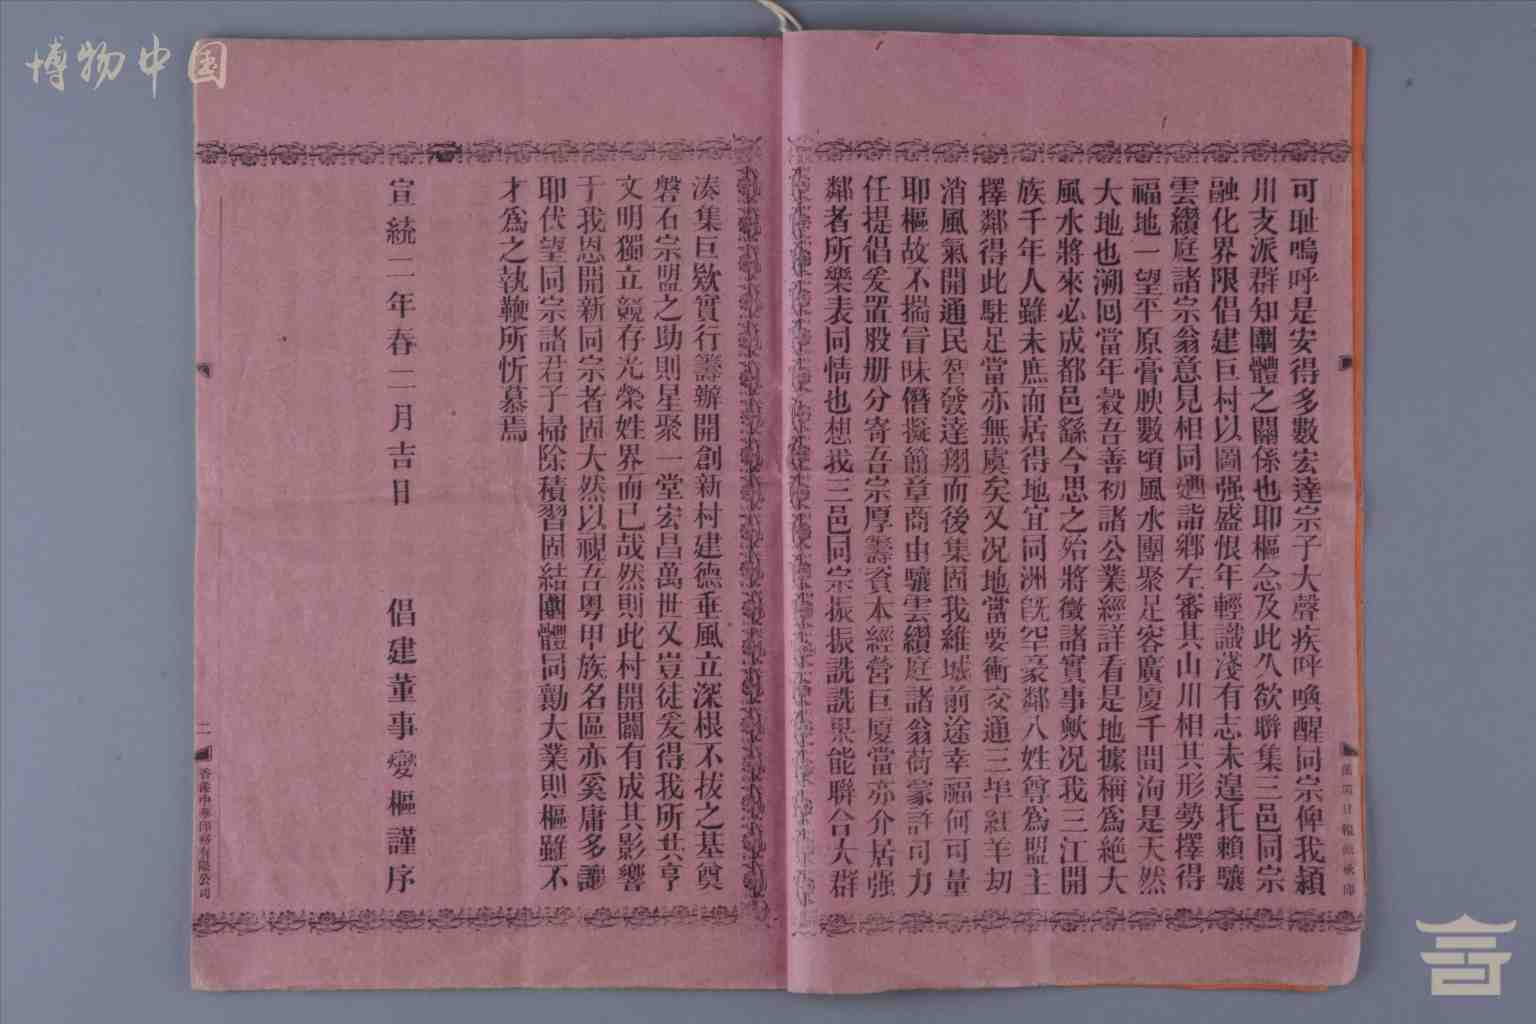 博物中国
可恥嗚呼是安得多數宏達宗子大聲疾呼喚醒同宗俾我潁
川支派群知團體之關係也耶樞念及此久欲聯集三邑同宗
融化界限倡建巨村以圖强盛恨年輕識淺有志未遑托賴驤
雲纘庭諸宗翁意見相同迺詣鄉左審其山川相其形勢擇得
福地一望平原膏腴數頃風水團聚足容廣廈千間洵是天然
大地也溯囘當年穀吾善初諸公業經詳看是地據稱爲絶大
風水將來必成都邑繇今思之殆將徵諸實事歟况我三江開
族千年人雖未庶而居得地宜同洲旣罕豪鄰八姓尊爲盟主
擇鄰得此駐足當亦無虞矣又况地當要衝交通三埠紅羊刧
消風氣開通民智發達翔而後集固我維城前途幸福何可量
耶樞故不揣冒昧僭擬簡章商由驤雲纘庭諸翁荷蒙許可力
任提倡爰置股册分寄吾宗厚籌資本經營巨廈當亦介居强
鄰者所樂表同情也想我三邑同宗振振詵詵果能聯合大群
湊集巨欵實行籌辦開創新村建德垂風立深根不拔之基奠
磐石宗盟之助則星聚一堂宏昌萬世又豈徒爰得我所共享
文明獨立競存光榮姓界而已哉然則此村開闢有成其影響
于我恩開新同宗者固大然以視吾粤甲族名區亦奚庸多讓
耶伏望同宗諸君子掃除積習固結團體同勷大業則樞雖不
才爲之執鞭所忻慕焉
宣統二年春二月吉日 倡建董事燮樞謹序
二
香港中華印務有限公司